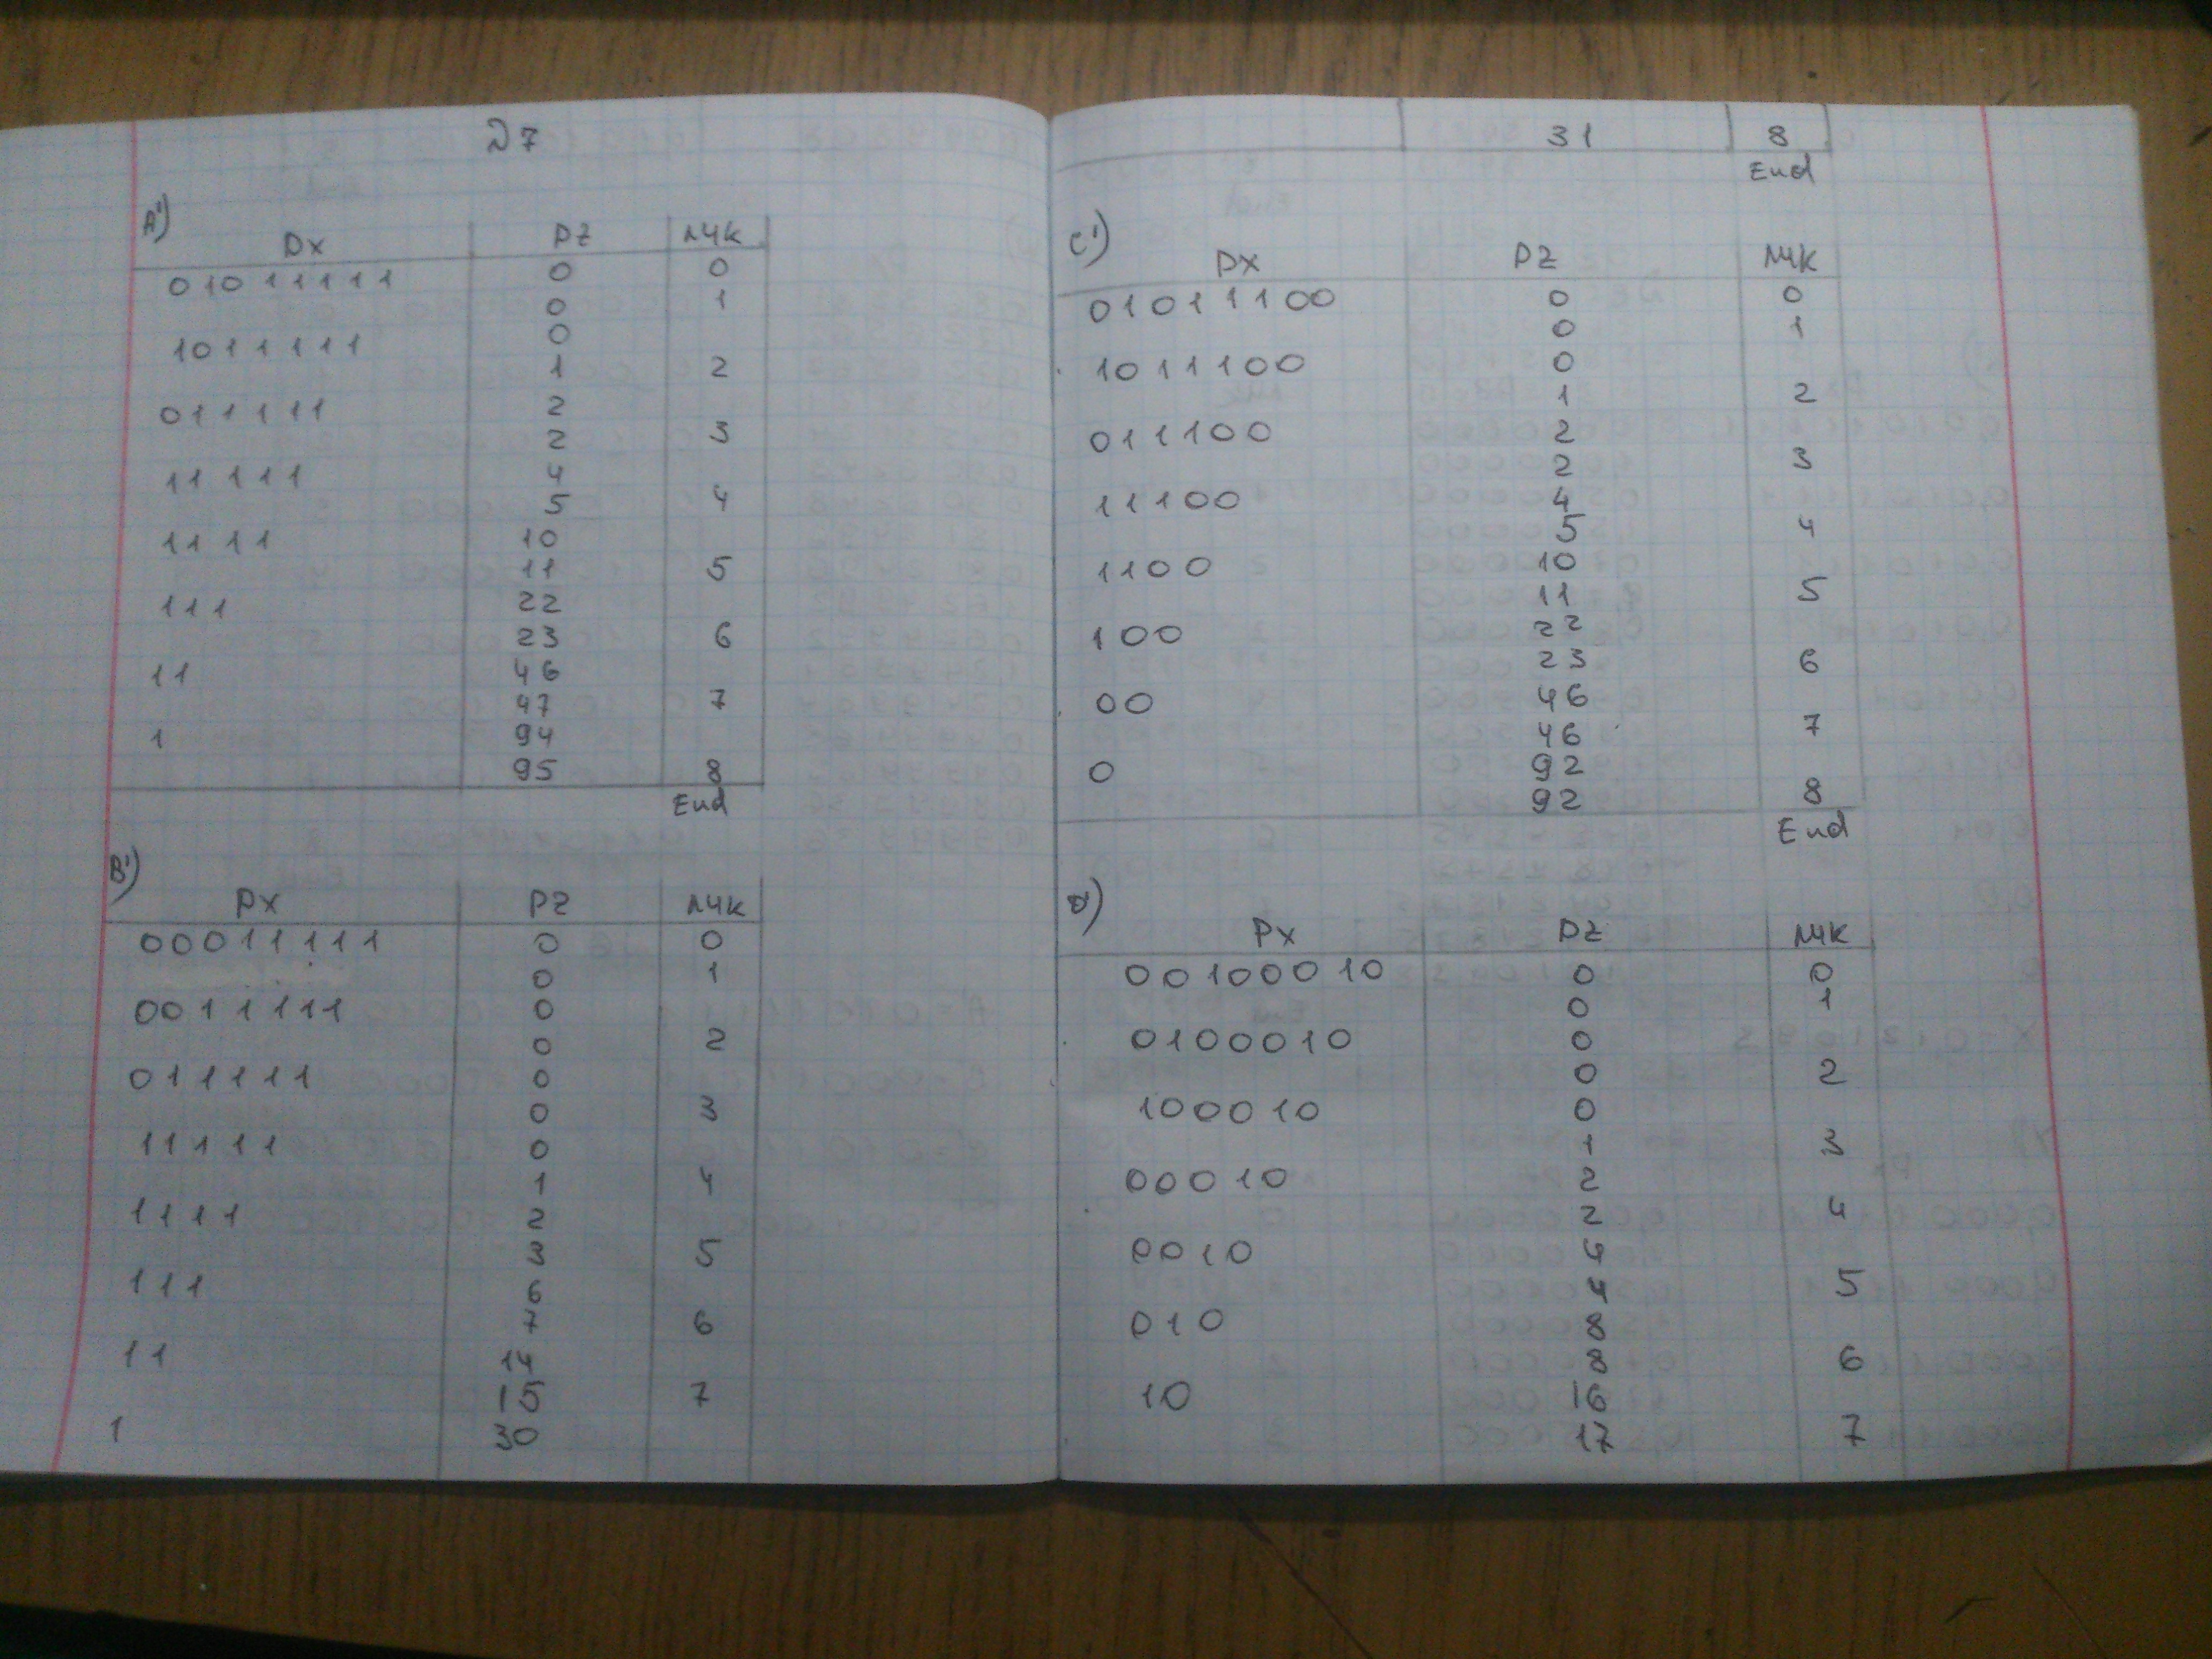 27
A')
Рх Рz ЛЧК
01011111 0 0
0 1
1011111 0
1 2
011111 2
2 3
11111 4
5 4
1111 10
11 5
111 22
23 6
11 46
47 7
1 94
95 8
End
B')
Рх Рz ЛЧК
00011111 0 0
0 1
0011111 0
0 2
011111 0
0 3
11111 0
1 4
1111 2
3 5
111 6
7 6
11 14
15 7
1 30
31 8
End
C')
Рх Рz ЛЧК
01011100 0 0
0 1
1011100 0
1 2
011100 2
2 3
11100 4
5 4
1100 10
11 5
100 22
23 6
00 46
46 7
0 92
92 8
End
Рх Рz ЛЧК
00100010 0 0
0 1
0100010 0
0 2
100010 0
1 3
00010 2
2 4
0010 4
4 5
010 8
8 6
10 16
17 7